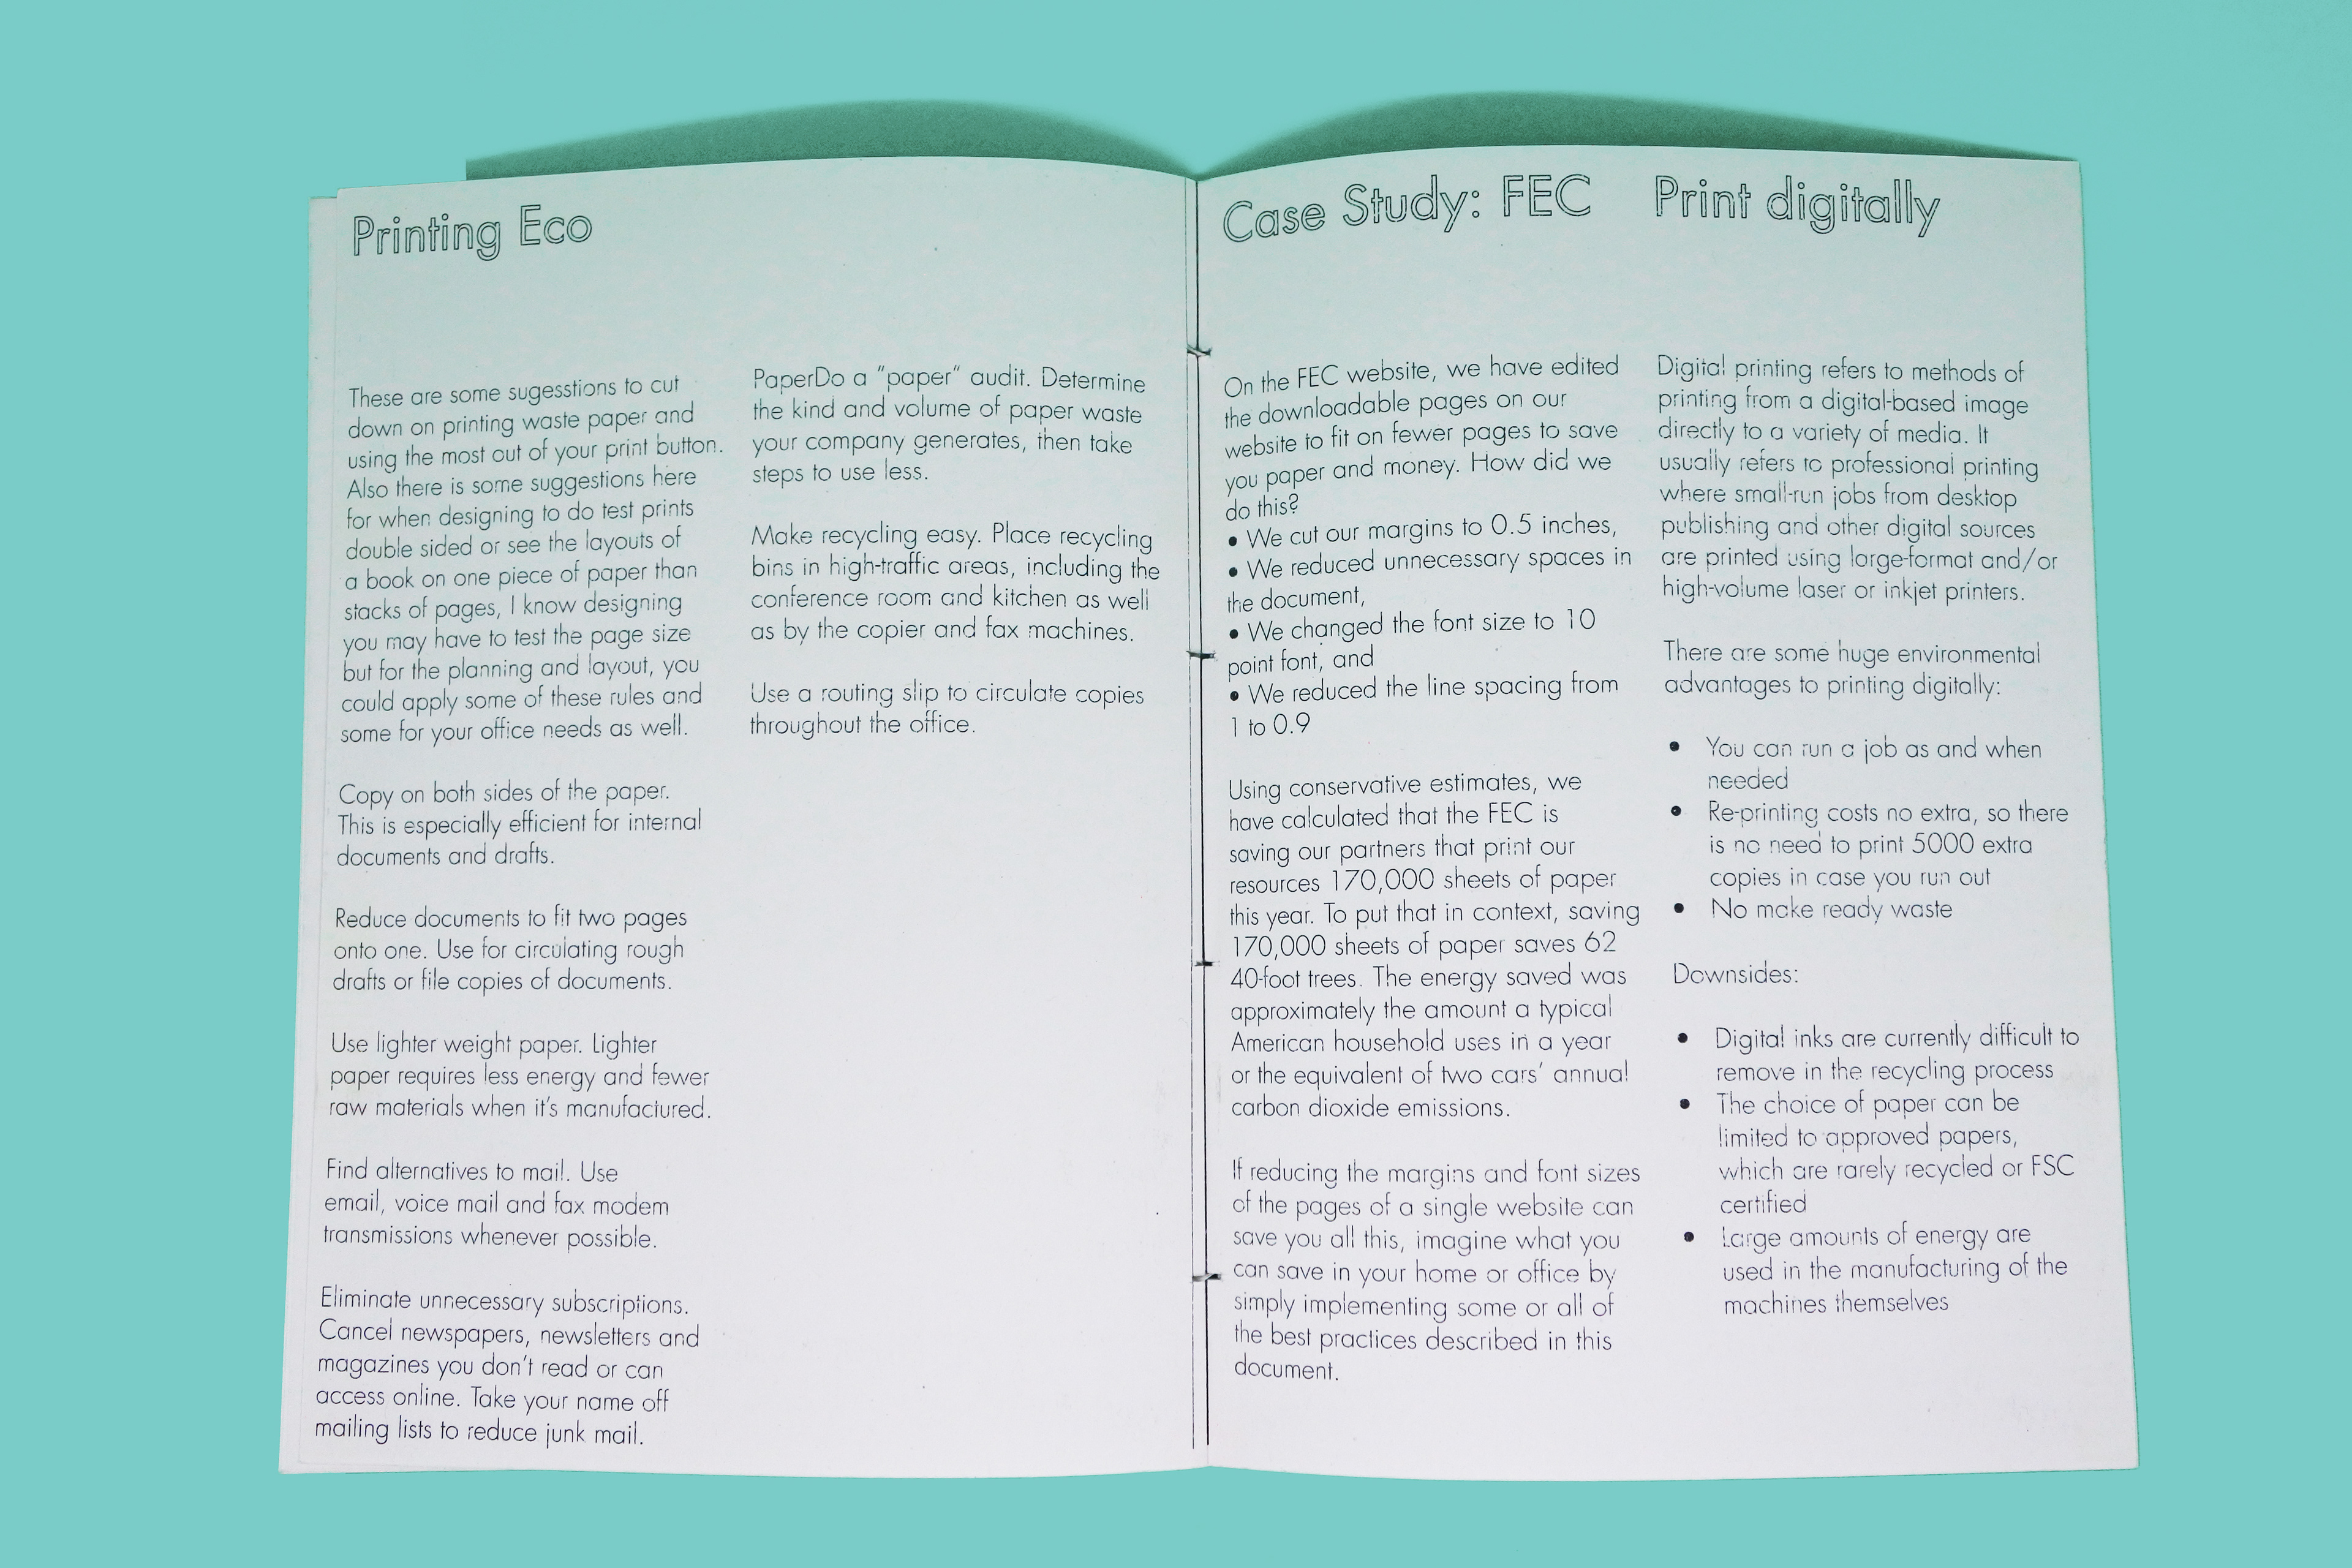 Printing Eco
These are some sugesstions to cut
down on printing waste paper and
using the most out of your print button.
Also there is some suggestions here
for when designing to do test prints
double sided or see the layouts of
a book on one piece of paper than
stacks of pages, I know designing
you may have to test the page size
but for the planning and layout, you
could apply some of these rules and
some for your office needs as well.
Copy on both sides of the paper.
This is especially efficient for internal
documents and drafts.
Reduce documents to fit two pages
onto one. Use for circulating rough
drafts or file copies of documents.
Use lighter weight paper. Lighter
paper requires less energy and fewer
raw materials when it's manufactured.
Find alternatives to mail. Use
email, voice mail and fax modem
transmissions whenever possible.
Eliminate unnecessary subscriptions.
Cancel newspapers, newsletters and
magazines you don't read or can
access online. Take your name off
mailing lists to reduce junk mail.
PaperDo a "paper" audit. Determine
the kind and volume of paper waste
your company generates, then take
steps to use less.
Make recycling easy. Place recycling
bins in high-traffic areas, including the
conference room and kitchen as well
as by the copier and fax machines.
Use a routing slip to circulate copies
throughout the office.
Case Study: FEC
On the FEC website, we have edited
the downloadable pages on our
website to fit on fewer pages to save
you paper and money. How did we
do this?
• We cut our margins to 0.5 inches,
• We reduced unnecessary spaces in
the document,
• We changed the font size to 10
point font, and
• We reduced the line spacing from
1 to 0.9
Using conservative estimates, we
have calculated that the FEC is
saving our partners that print our
resources 170,000 sheets of paper
this year. To put that in context, saving
170,000 sheets of paper saves 62
40-foot trees. The energy saved was
approximately the amount a typical
American household uses in a year
or the equivalent of two cars' annual
carbon dioxide emissions.
If reducing the margins and font sizes
of the pages of a single website can
save you all this, imagine what you
can save in your home or office by
simply implementing some or all of
the best practices described in this
document.
Print digitally
Digital printing refers to methods of
printing from a digital-based image
directly to a variety of media. It
usually refers to professional printing
where small-run jobs from desktop
publishing and other digital sources
are printed using large-format and/or
high-volume laser or inkjet printers.
There are some huge environmental
advantages to printing digitally:
• You can run a job as and when
needed
• Re-printing costs no extra, so there
is no need to print 5000 extra
copies in case you run out
• No make ready waste
Downsides:
• Digital inks are currently difficult to
remove in the recycling process
• The choice of paper can be
limited to approved papers,
which are rarely recycled or FSC
certified
• Large amounts of energy are
used in the manufacturing of the
machines themselves